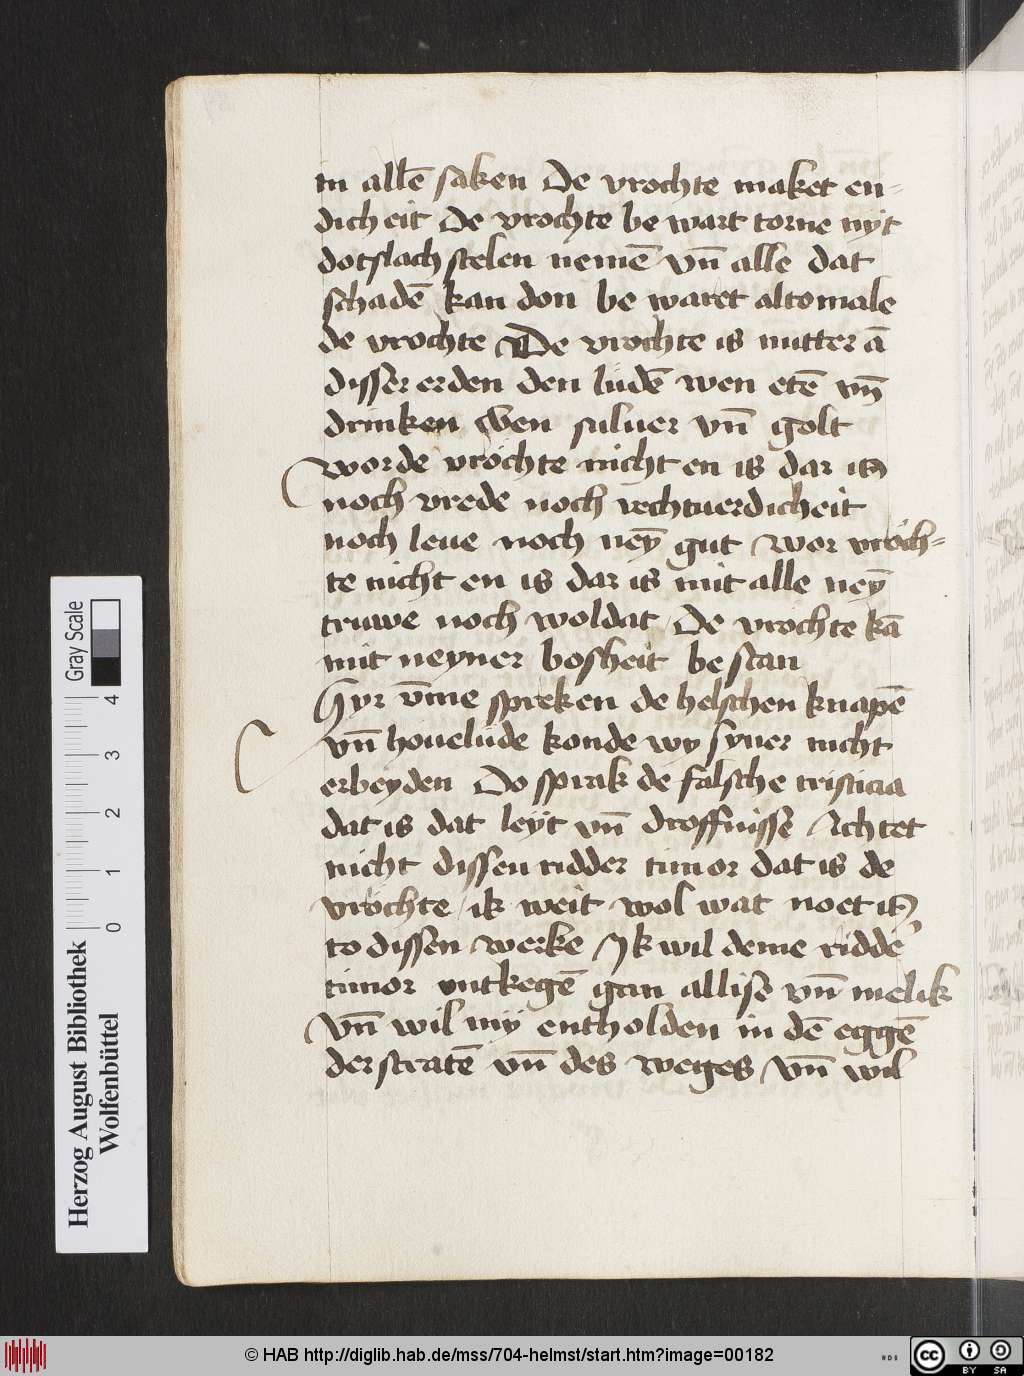 in allē saken De vrochte maket en=
dicheit De vrochte be wart torne nyt
dotslach stelen nemē vn̄ alle dat
schadē kan don be waret altomale
de vrochte De vrochte is nutter ā
disser erden den lüdē wen etē vn̄
drinken Wen suluer vn̄ golt
wor de vröchte nicht en is dar is
noch vrede noch rechtuerdicheit
noch leue noch neȳ gut Wor vröch=
te nicht en is dar is mit alle neȳ
truwe noch woldat De vrochte kā
mit neyner bosheit be stan
Hyr v̄me spreken de helschen knapē
vn̄ houelüde konde wy syner nicht
erbeyden Do sprak de falsche tristicia
dat is dat leyt vn̄ droffnisse Achtet
nicht dissen ridder timor dat is de
vröchte ik weit wol wat noet is
to dissen werke Ik wil deme ridde'
timor vntkegē gan allise vn̄ melik
vn̄ wil my entholden in dē eggē
der stratē vn̄ des weges vn̄ wil
Herzog August Bibliothek
Wolfenbüttel
Gray Scale
0 1 2 3 4
© HAB http://diglib.hab.de/mss/704-helmst/start.htm?image=00182
HAB
cc BY SA